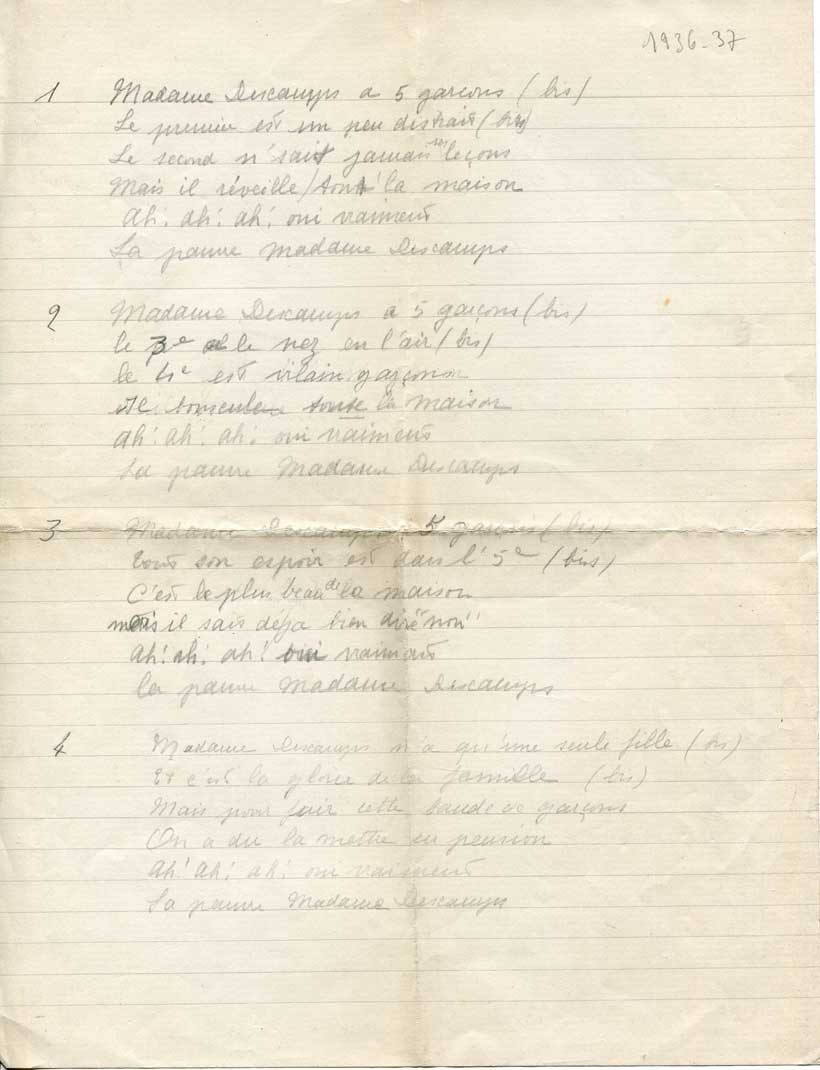 1936-37
1 Madame Descamps a 5 garçons (bis)
Le premier est un peu distrait (bis)
Le second n'sait jamais ses leçons
Mais il réveille tout' la maison
Ah! ah! ah! oui vraiment
La pauvre Madame Descamps
2 Madame Descamps a 5 garçons (bis)
le 3e a le nez en l'air (bis)
le 4e est vilain garçon
Il bouscule toute la maison
Ah! ah! ah! oui vraiment
La pauvre Madame Descamps
3 Madame Descamps a 5 garçons (bis)
Tout son espoir est dans l'5e (bis)
C'est le plus beau de la maison
mais il sait déja bien dire "non"
Ah! ah! ah! oui vraiment
la pauvre Madame Descamps
4 Madame Descamps n'a qu'une seule fille (bis)
Et c'est la gloire de la famille (bis)
Mais pour fuir cette bande de garçons
On a du la mettre en pension
Ah! Ah! ah! oui vraiment
La pauvre Madame Descamps